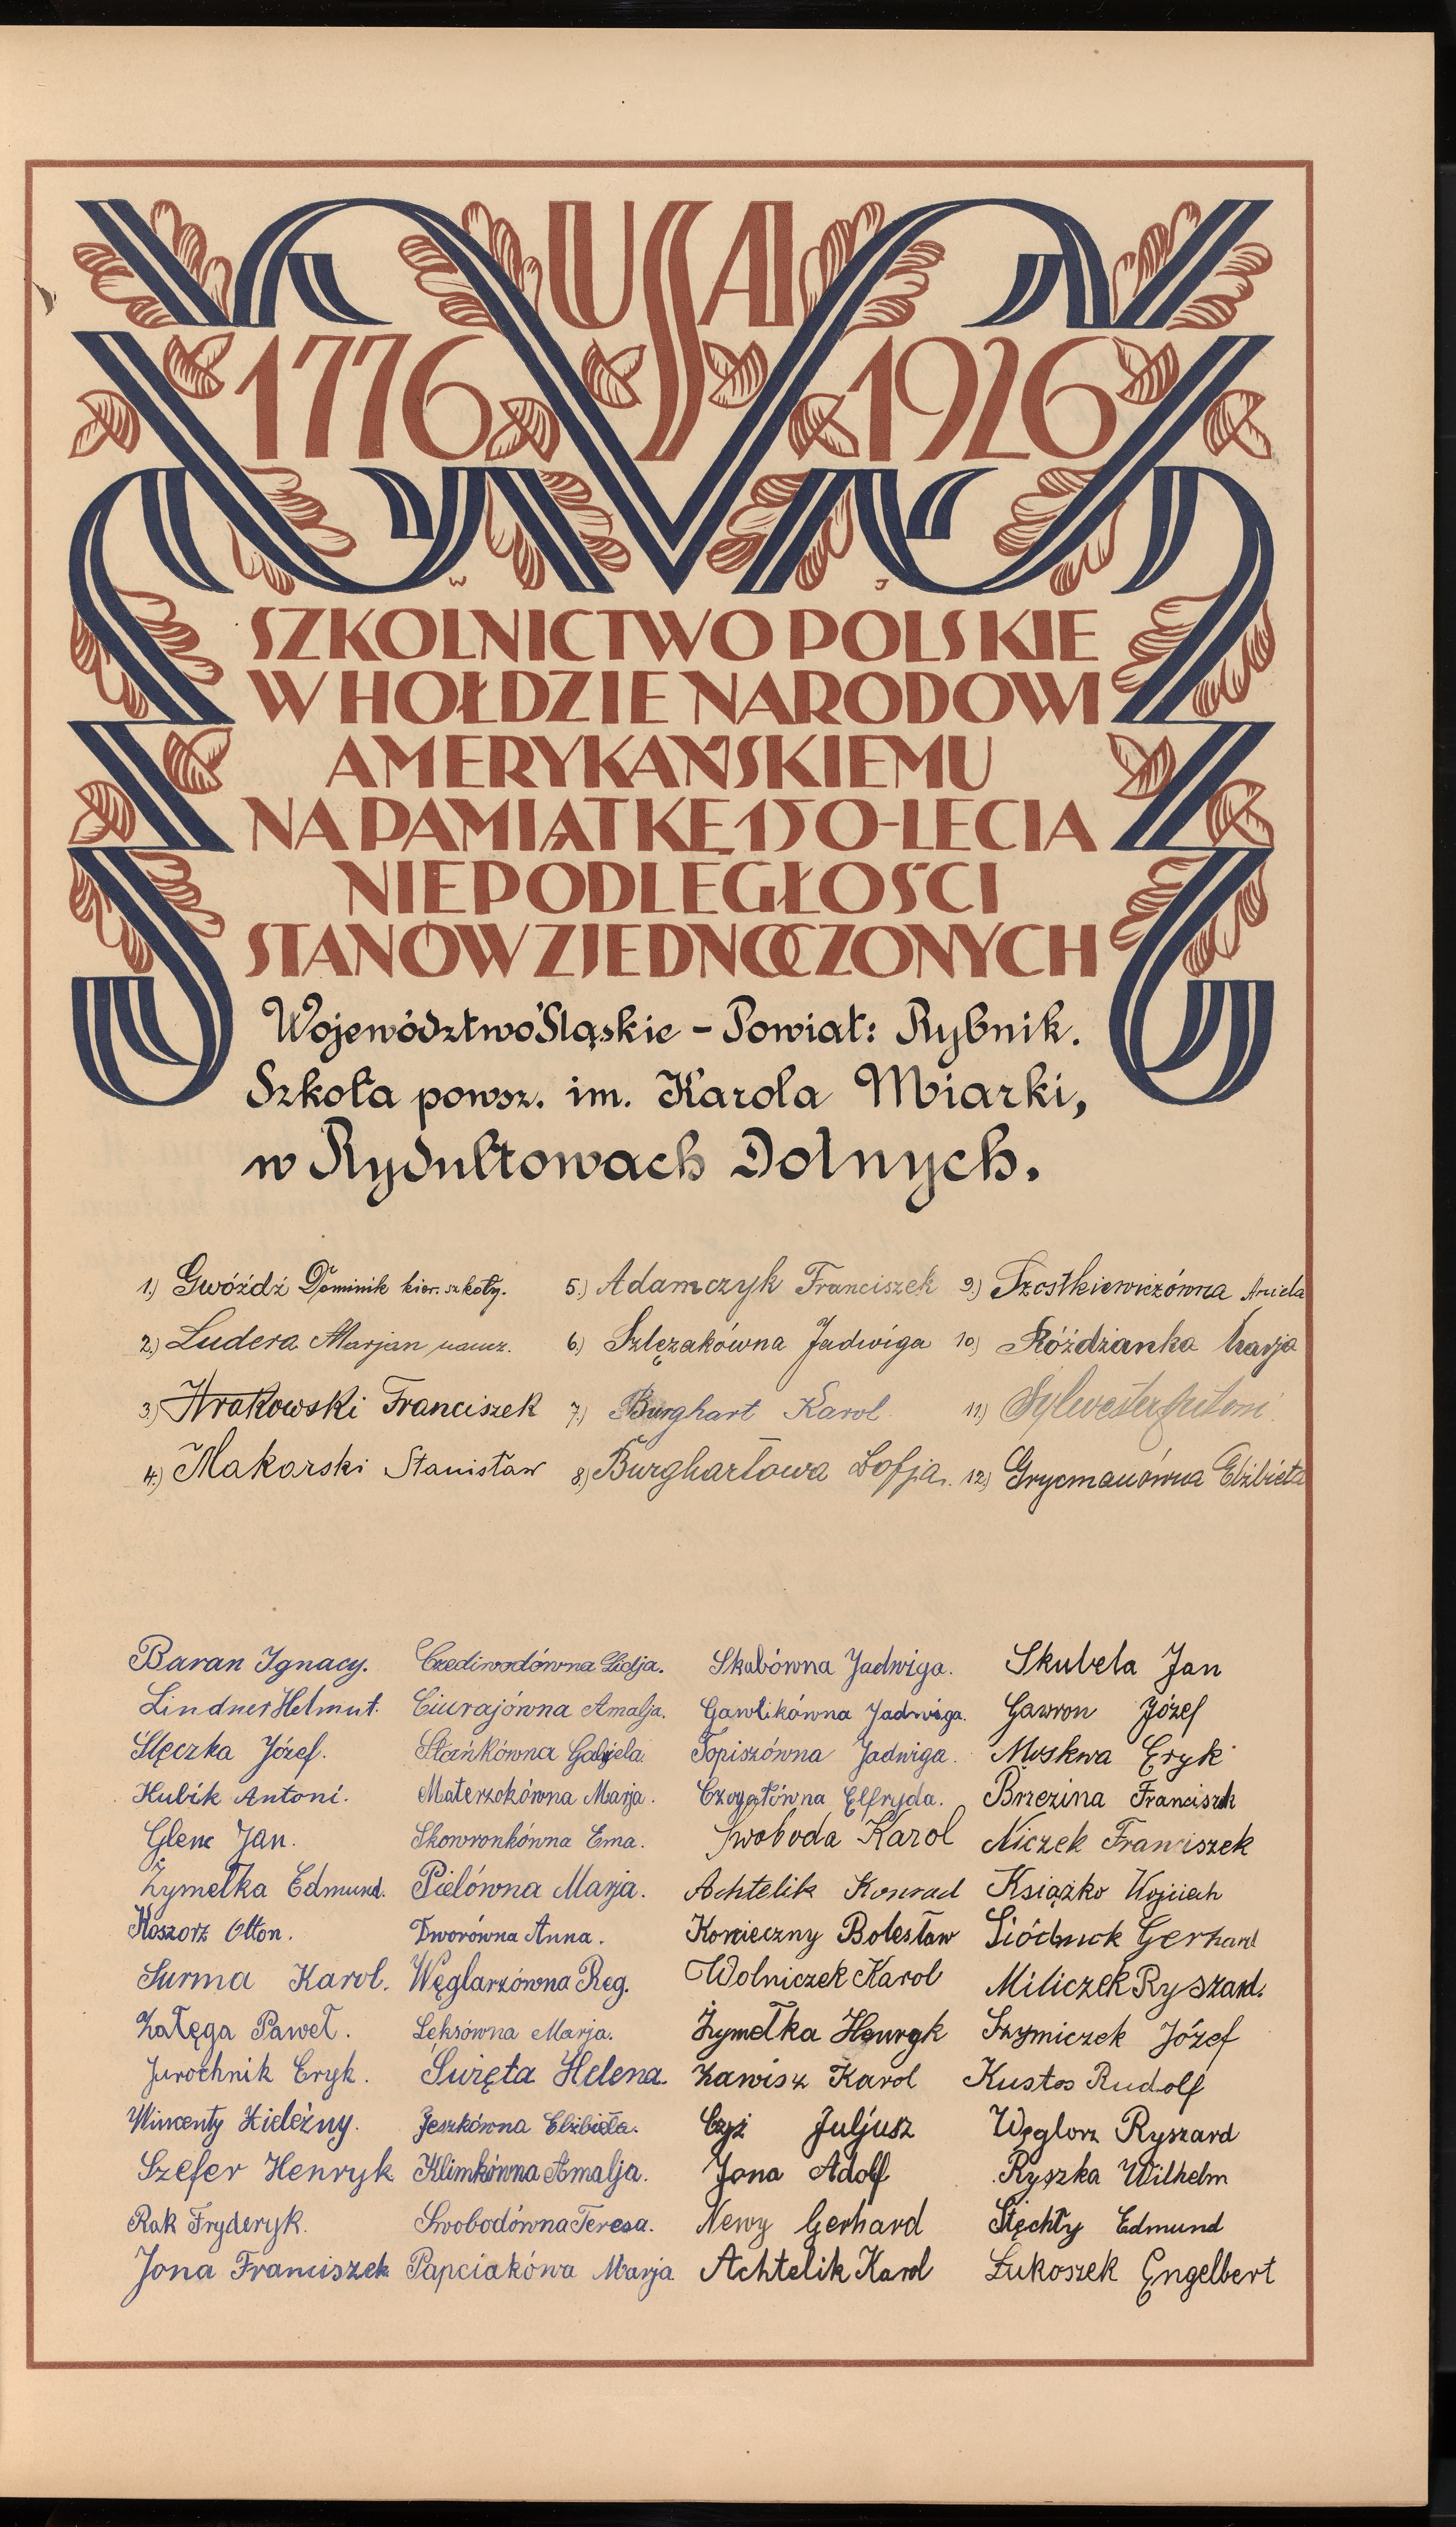 USA
1776 1926
W J
SZKOLNICTWO POLSKIE
W HOŁDZIE NARODOWI
AMERYKAŃSKIEMU
NA PAMIĄTKĘ 150-LECIA
NIEPODLEGŁOŚCI
STANÓW ZJEDNOCZONYCH
Województwo Śląskie – Powiat: Rybnik.
Szkoła powsz. im. Karola Miarki,
w Rydułtowach Dolnych.
1.) Gwóźdź Dominik kier. szkoły. 5.) Adamczyk Franciszek 9.) Szostkiewiczówna Aniela
2.) Ludera Marjan naucz. 6.) Szlęzakówna Jadwiga 10.) Różdżanka Marja
3.) Krakowski Franciszek 7.) Burghart Karol 11.) Sylwester Antoni
4.) Makarski Stanisław 8.) Burghartowa Zofja. 12.) Grycmanówna Elżbieta
Baran Ignacy. Lidja. Skabówna Jadwiga. Skubela Jan
Lindner Helmut. Ciurajówna Amalja. Gawlikówna Jadwiga. Gawron Józef
Ślęczka Józef. Stańkówna Gabrjela. Topiszówna Jadwiga. Moskwa Eryk
Kubik Antoni. Materzokówna Marja. Czogałówna Elfryda. Brzezina Franciszek
Glenc Jan. Skowronkówna Ema. Swoboda Karol Niczek Franciszek
Zymełka Edmund. Pielówna Marja. Achtelik Konrad Książko Wojciech
Koszorz Otton. Dworówna Anna. Konieczny Bolesław Siódmok Gerhard
Surma Karol. Węglarzówna Reg. Wolniczek Karol Miliczek Ryszard.
Załęga Paweł. Leksówna Marja. Żymełka Henryk Szymiczek Józef
Jurochnik Eryk. Święta Helena. Zawisz Karol Kustos Rudolf
Wincenty Zieleźny. Jeszkówna Elżbieta. Czyż Juljusz Węglorz Ryszard
Szefer Henryk Klimkówna Amalja. Jona Adolf Ryszka Wilhelm
Rak Fryderyk. Swobodówna Teresa. Newy Gerhard Stęchły Edmund
Jona Franciszek Papciakówna Marja Achtelik Karol Łukoszek Engelbert